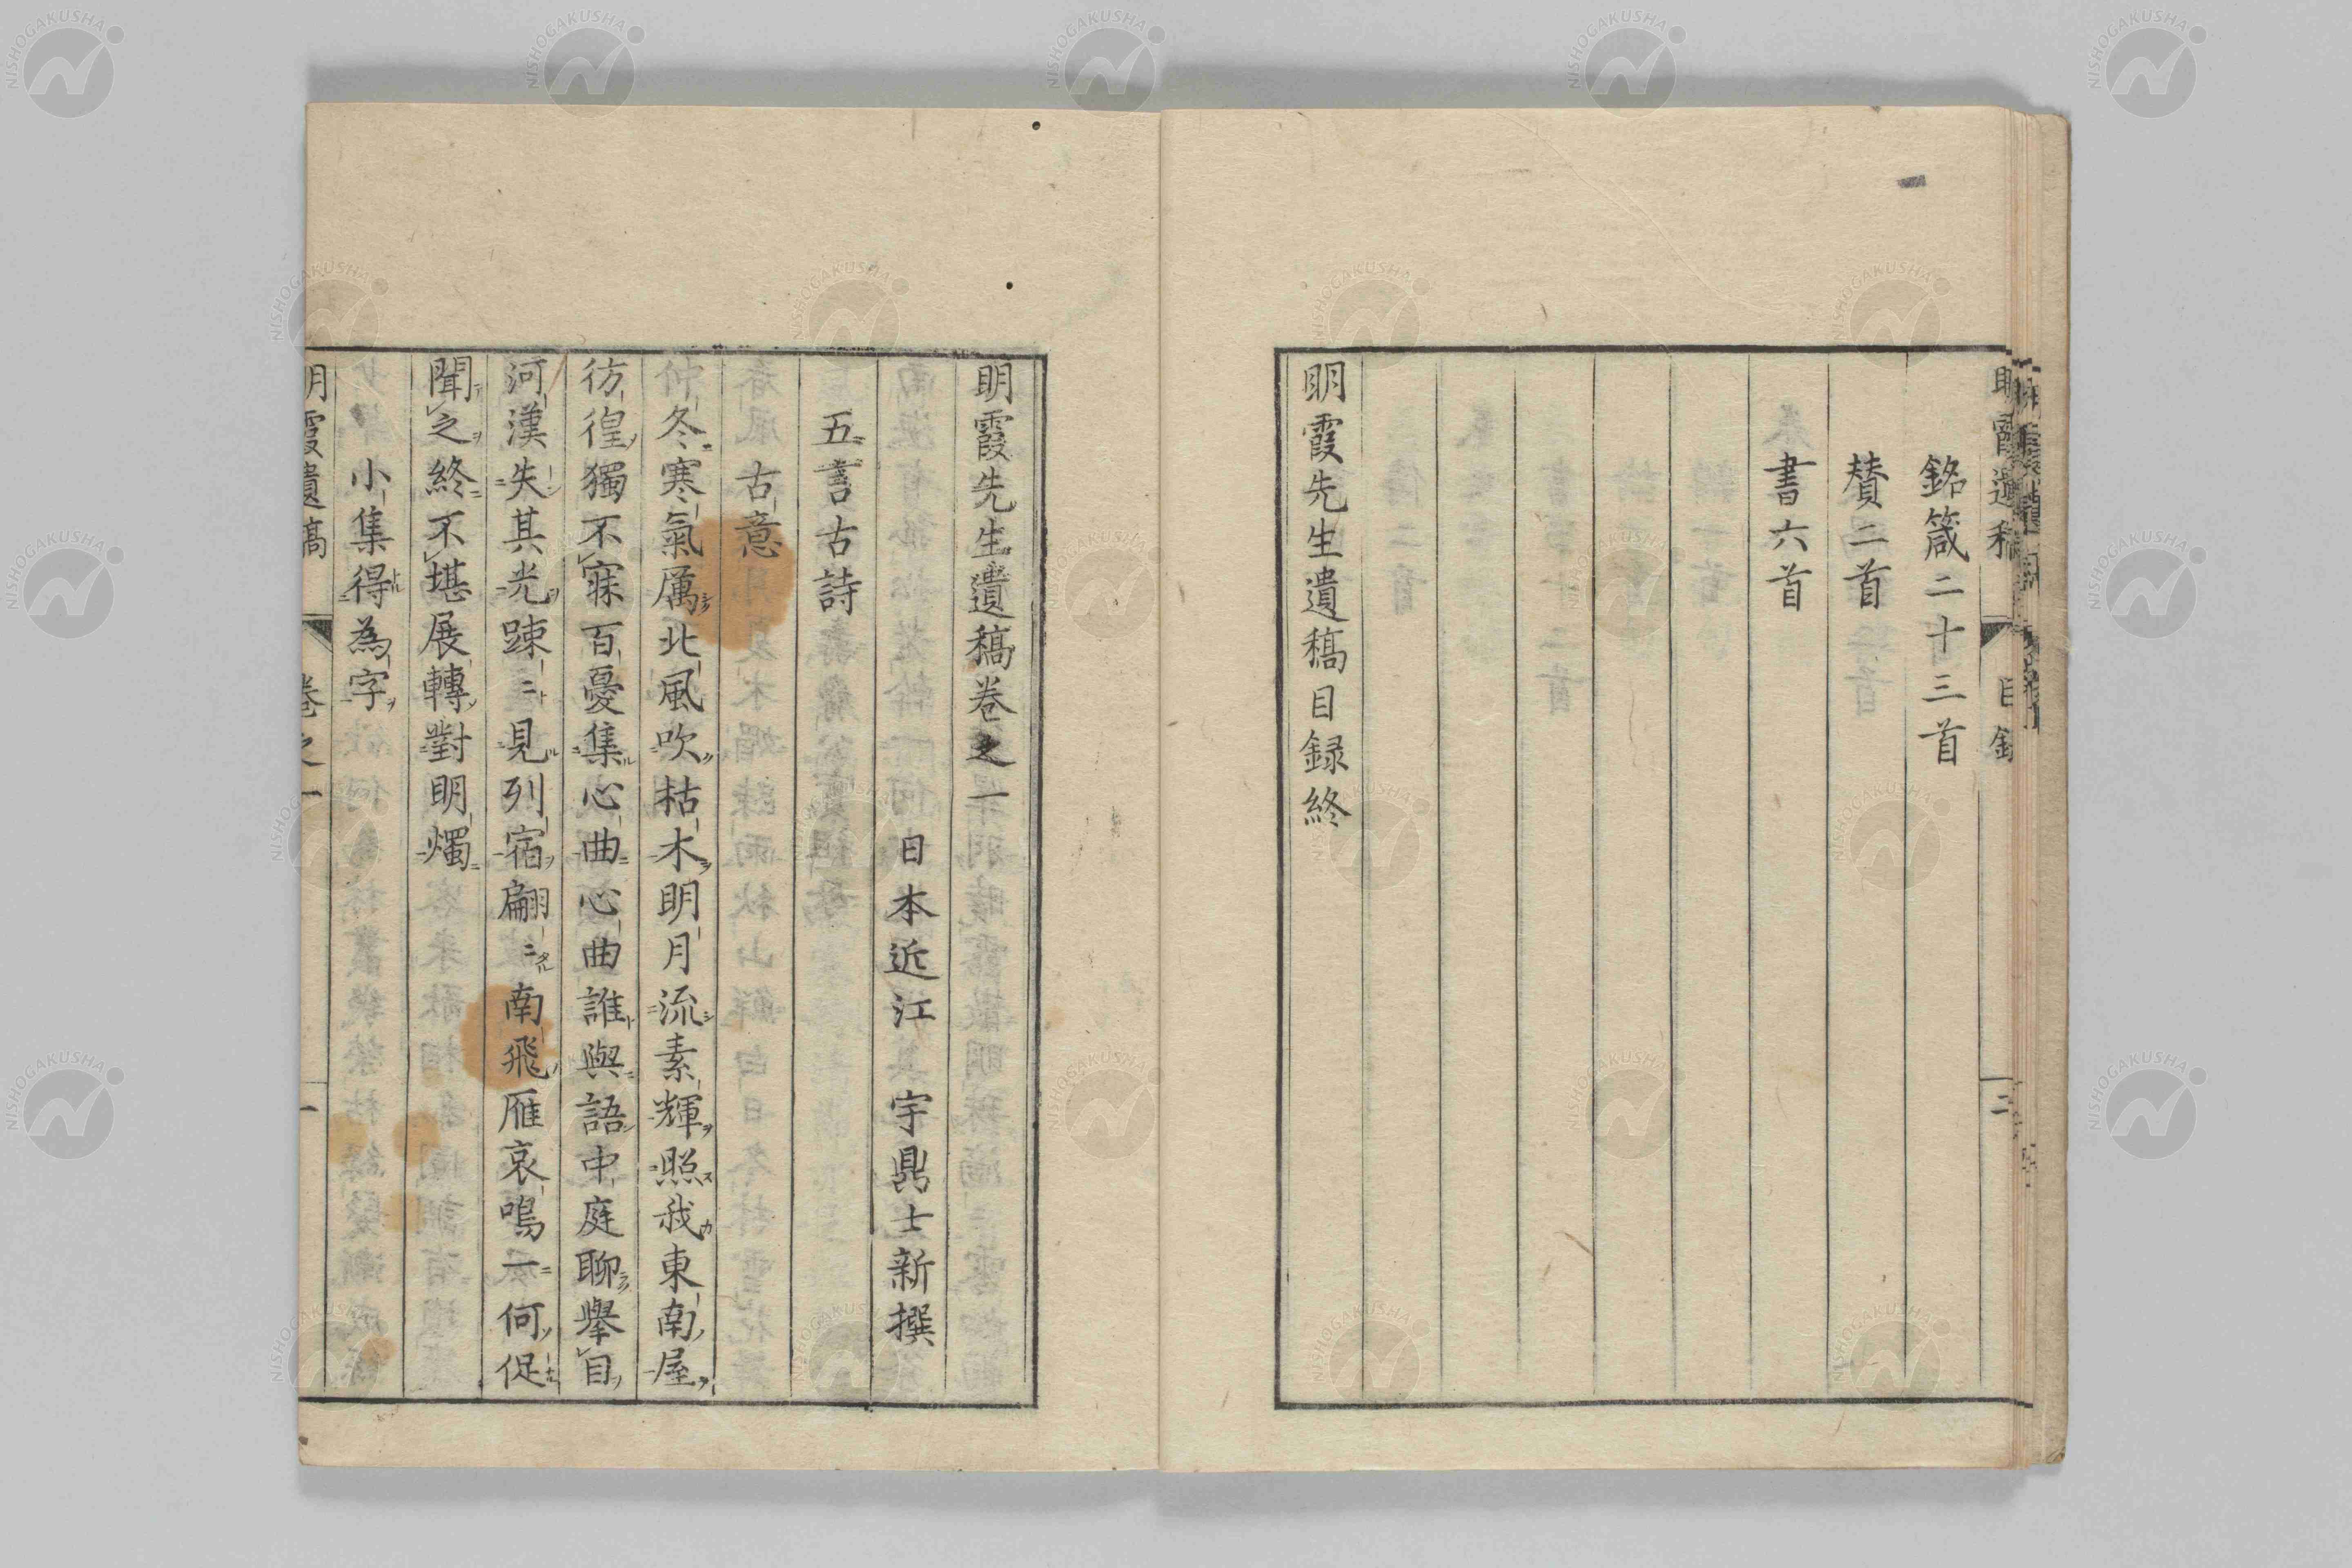 明霞遺稿 目録 二
銘箴二十三首
賛二首
書六首
明霞先生遺稿目録終
明霞先生遺稿卷之一
日本近江 宇鼎士新撰
五言古詩
古意
仲冬寒氣厲北風吹枯木明月流素輝照我東南屋
彷徨獨不寐百憂集心曲心曲誰與語中庭聊擧目
河漢失其光踈〻見列宿翩〻南飛雁哀鳴一何促
聞之終不堪展轉對明燭
小集得為字
明霞遺稿 卷之一 一
NISHOGAKUSHA